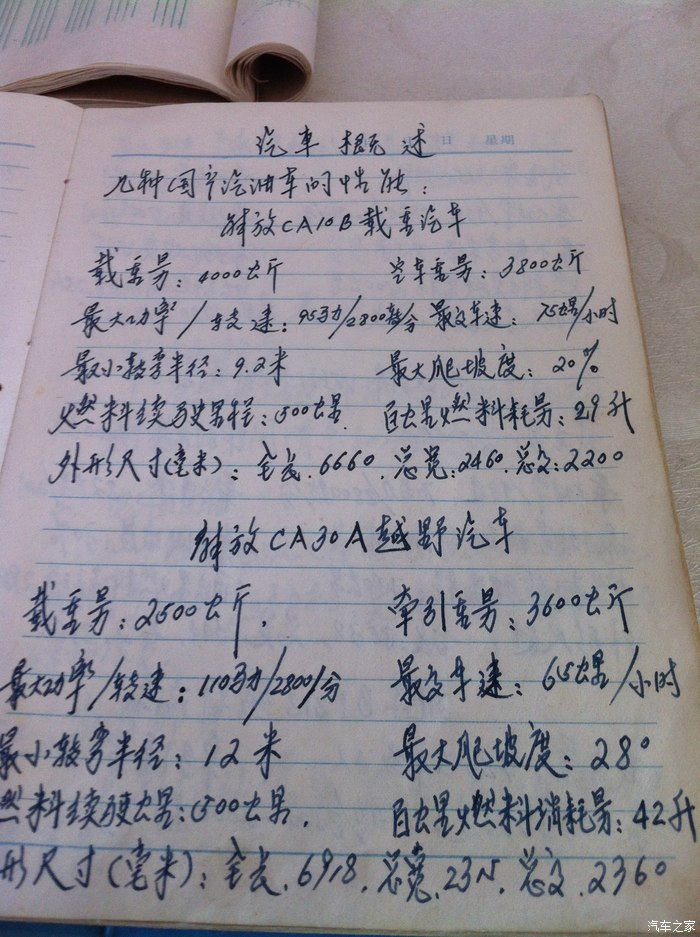 日 星期
汽车概述
几种国产汽油车的性能：
解放CA10B载重汽车
载重量：4000公斤 空车重量：3800公斤
最大功率/转速：95马力/2800转/分 最高车速：75公里/小时
最小转弯半径：9.2米 最大爬坡度：20%
燃料续驶里程：500公里. 百公里燃料耗量：29升
外形尺寸(毫米)：全长.6660.总宽:2460.总高:2200
解放CA30A越野汽车
载重量：2500公斤. 牵引重量：3600公斤
最大功率/转速：110马力/2800/分 最高车速：65公里/小时
最小转弯半径：12米 最大爬坡度：28°
燃料续驶公里:500公里. 百公里燃料消耗量：42升
形尺寸(毫米)：全长.6918.总宽.总高.2360
汽车之家